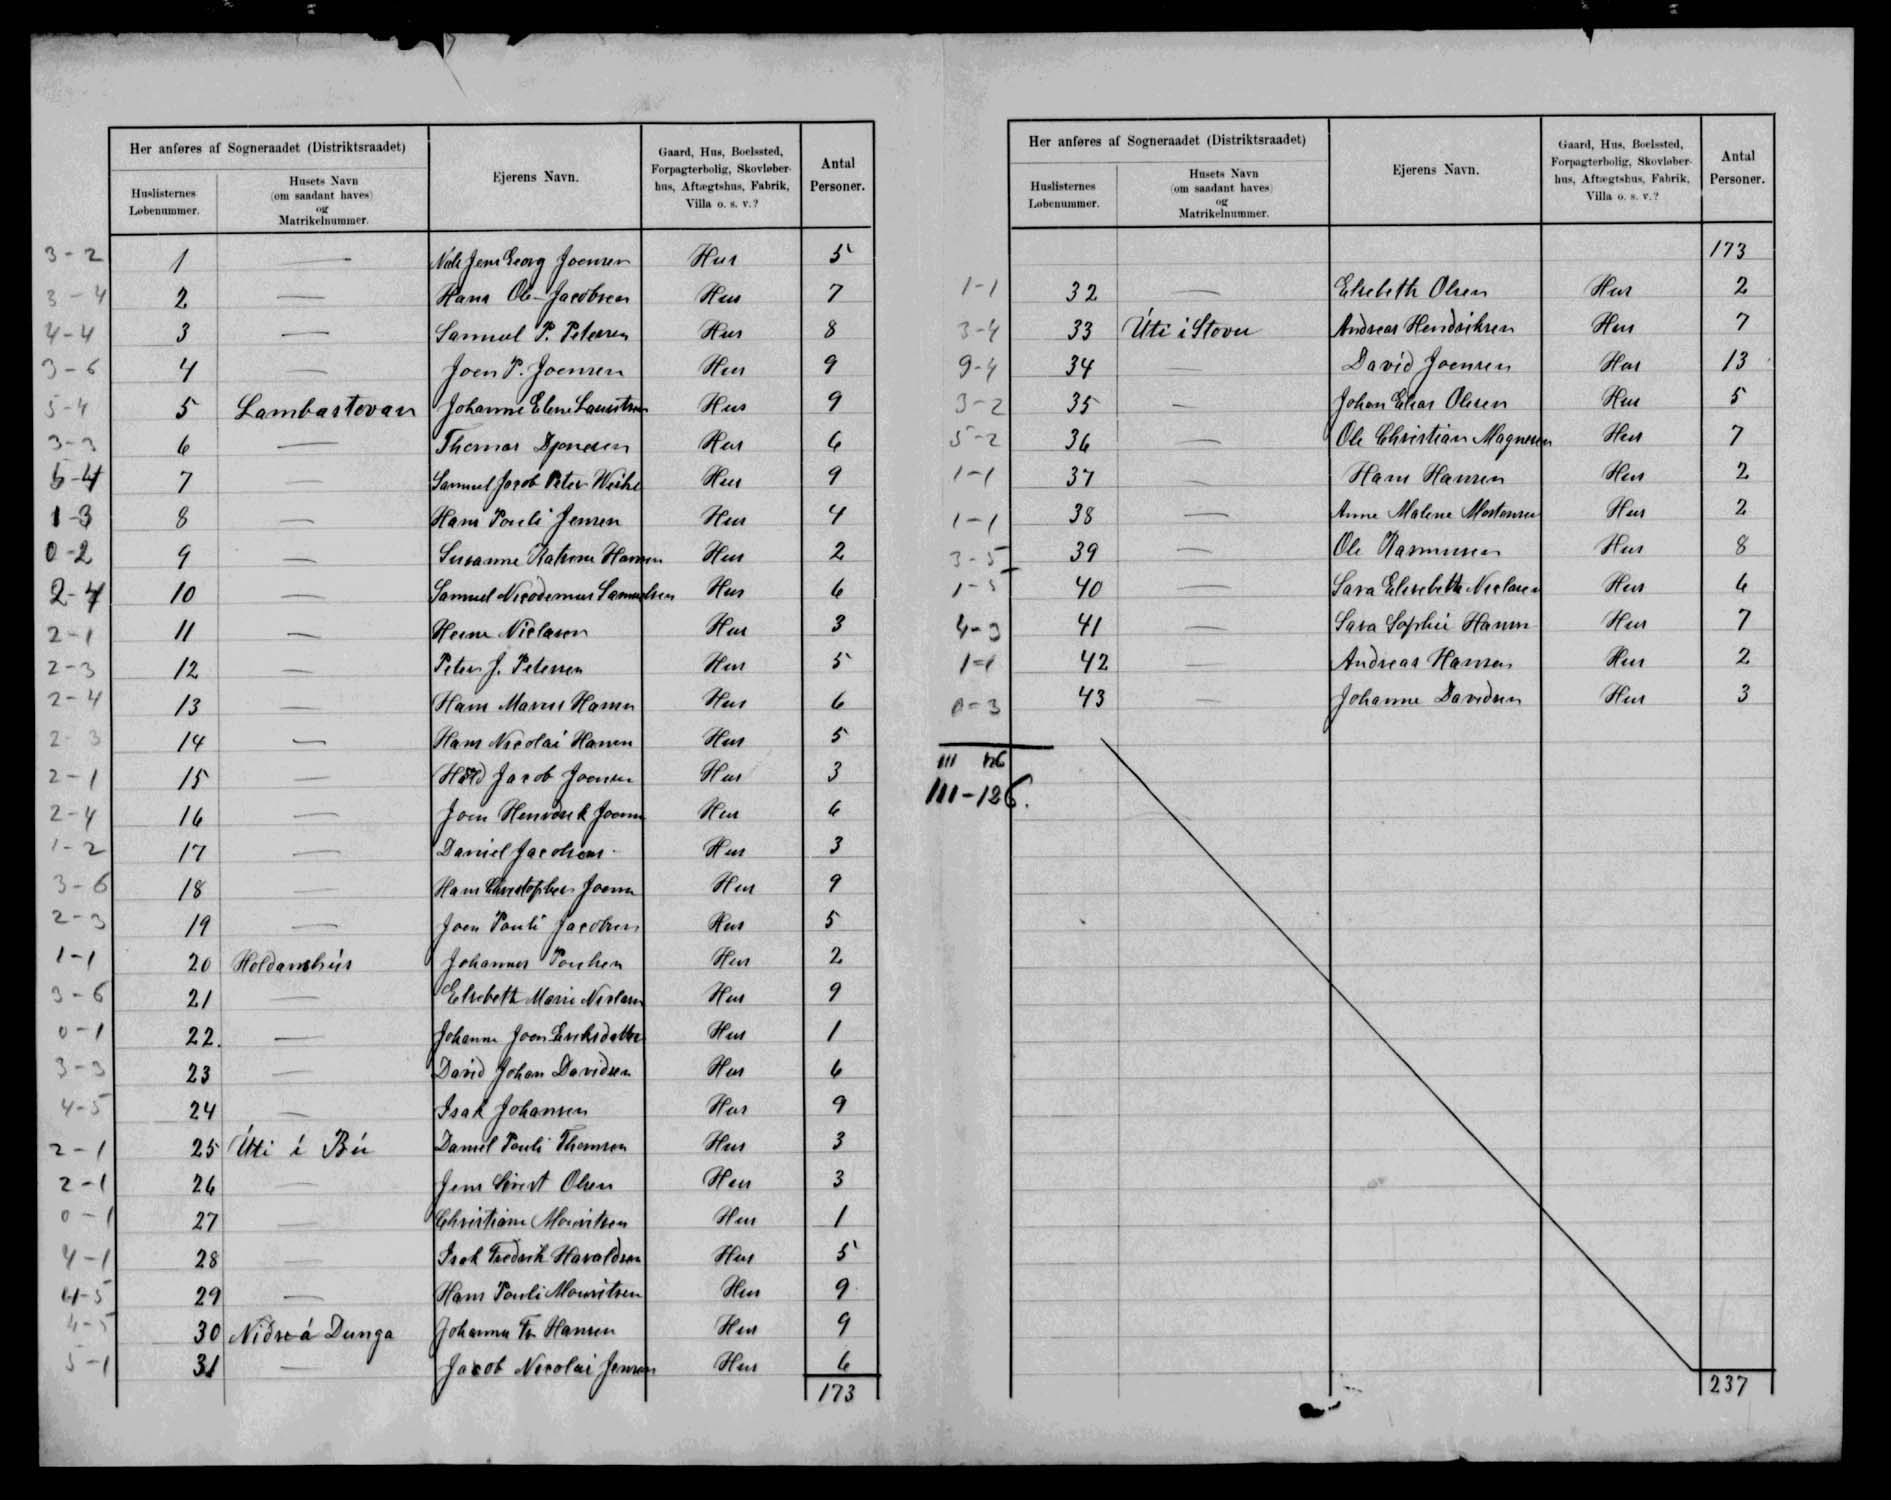 Her anføres af Sogneraadet (Distriktsraadet)
Huslisternes Løbenummer.
Husets Navn (om saadant haves) og Matrikelnummer.
Ejerens Navn.
Gaard, Hus, Boelssted, Forpagterbolig, Skovløberhus, Aftægtshus, Fabrik, Villa o. s. v.?
Antal Personer.
3-2 1 — Niels Jens Georg Joensen Hus 5
3-4 2 — Hans Ole Jacobsen Hus 7
4-4 3 — Samuel P. Petersen Hus 8
3-6 4 — Joen P. Joensen Hus 9
5-4 5 Lambastovan Johanne Elene Lauritsen Hus 9
3-3 6 — Thomas Djonesen Hus 6
5-4 7 — Samuel Jacob Peter Weihe Hus 9
1-3 8 — Hans Pouli Jensen Hus 4
0-2 9 — Susanne Katrine Hansen Hus 2
2-4 10 — Samuel Nicodemus Samuelsen Hus 6
2-1 11 — Heine Niclasen Hus 3
2-3 12 — Peter J. Petersen Hus 5
2-4 13 — Hans Marius Hansen Hus 6
2-3 14 — Hans Nicolai Hansen Hus 5
2-1 15 — Jacob Joensen Hus 3
2-4 16 — Joen Hendrik Joensen Hus 6
1-2 17 — Daniel Jacobsen Hus 3
3-6 18 — Hans Christopher Joensen Hus 9
2-3 19 — Joen Pouli Jacobsen Hus 5
1-1 20 Holdanshús Johannes Poulsen Hus 2
3-6 21 — Elsebeth Marie Niclasen Hus 9
0-1 22. — Johanne Joen Eriksdatter Hus 1
3-3 23 — David Johan Davidsen Hus 6
4-5 24 — Isak Johansen Hus 9
2-1 25 Úti í Bú Daniel Pouli Thomsen Hus 3
2-1 26 — Jens Sivert Olsen Hus 3
0-1 27 — Christiane Mouritsen Hus 1
4-1 28 — Isak Fredrik Haraldsen Hus 5
4-5 29 — Hans Pouli Mouritsen Hus 9
4-5 30 Niðri á Dunga Johannes Fr. Hansen Hus 9
5-1 31 — Jacob Nicolai Jensen Hus 6
173
Her anføres af Sogneraadet (Distriktsraadet)
Huslisternes Løbenummer.
Husets Navn (om saadant haves) og Matrikelnummer.
Ejerens Navn.
Gaard, Hus, Boelssted, Forpagterbolig, Skovløberhus, Aftægtshus, Fabrik, Villa o. s. v.?
Antal Personer.
173
1-1 32 — Elsebeth Olsen Hus 2
3-4 33 Úti í Stovu Andreas Hendriksen Hus 7
9-4 34 — David Joensen Hus 13
3-2 35 — Johan Elias Olesen Hus 5
5-2 36 — Ole Christian Magnesen Hus 7
1-1 37 — Hans Hansen Hus 2
1-1 38 — Anne Malene Mortensen Hus 2
3-5 39 — Ole Rasmussen Hus 8
1-5 40 — Sara Elisebeth Niclasen Hus 6
4-3 41 — Sara Sophie Hansen Hus 7
1-1 42 — Andreas Hansen Hus 2
0-3 43 — Johanne Davidsen Hus 3
111 126
111-126.
237